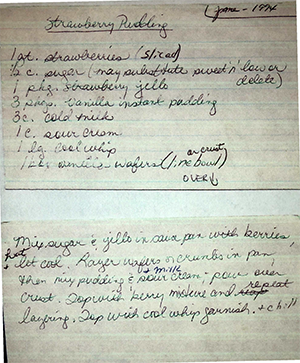 (June - 1994
Strawberry Pudding
1 qt. strawberries (sliced)
1/2 c. sugar (may substitute sweet 'n' low or delete)
1 pkg. strawberry jello
3 pkgs. vanilla instant pudding
3 c. cold milk
1 c. sour cream
1 lg. cool whip
1 vanilla wafers (line bowl or crust)
OVER
Mix sugar & jello in sauce pan with berries,
heat + let cool. Layer wafers or crumbs in pan,
then mix pudding & milk + sour cream; pour over
crust. Top with berry mixture and repeat
layering. Top with cool whip garnish. + chill